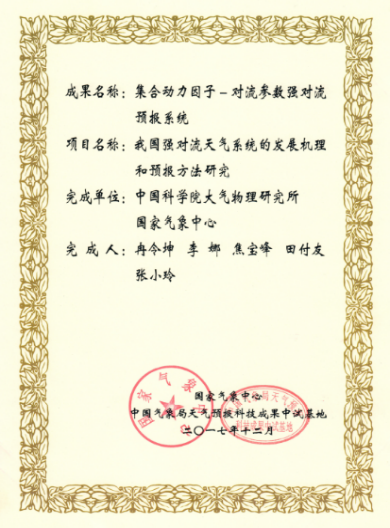 成果名称：集合动力因子－对流参数强对流
预报系统
项目名称：我国强对流天气系统的发展机理
和预报方法研究
完成单位：中国科学院大气物理研究所
国家气象中心
完 成 人：冉令坤 李 娜 焦宝峰 田付友
张小玲
国家气象中心
中国气象局天气预报科技成果中试基地
二〇一七年十二月
国家气象中心